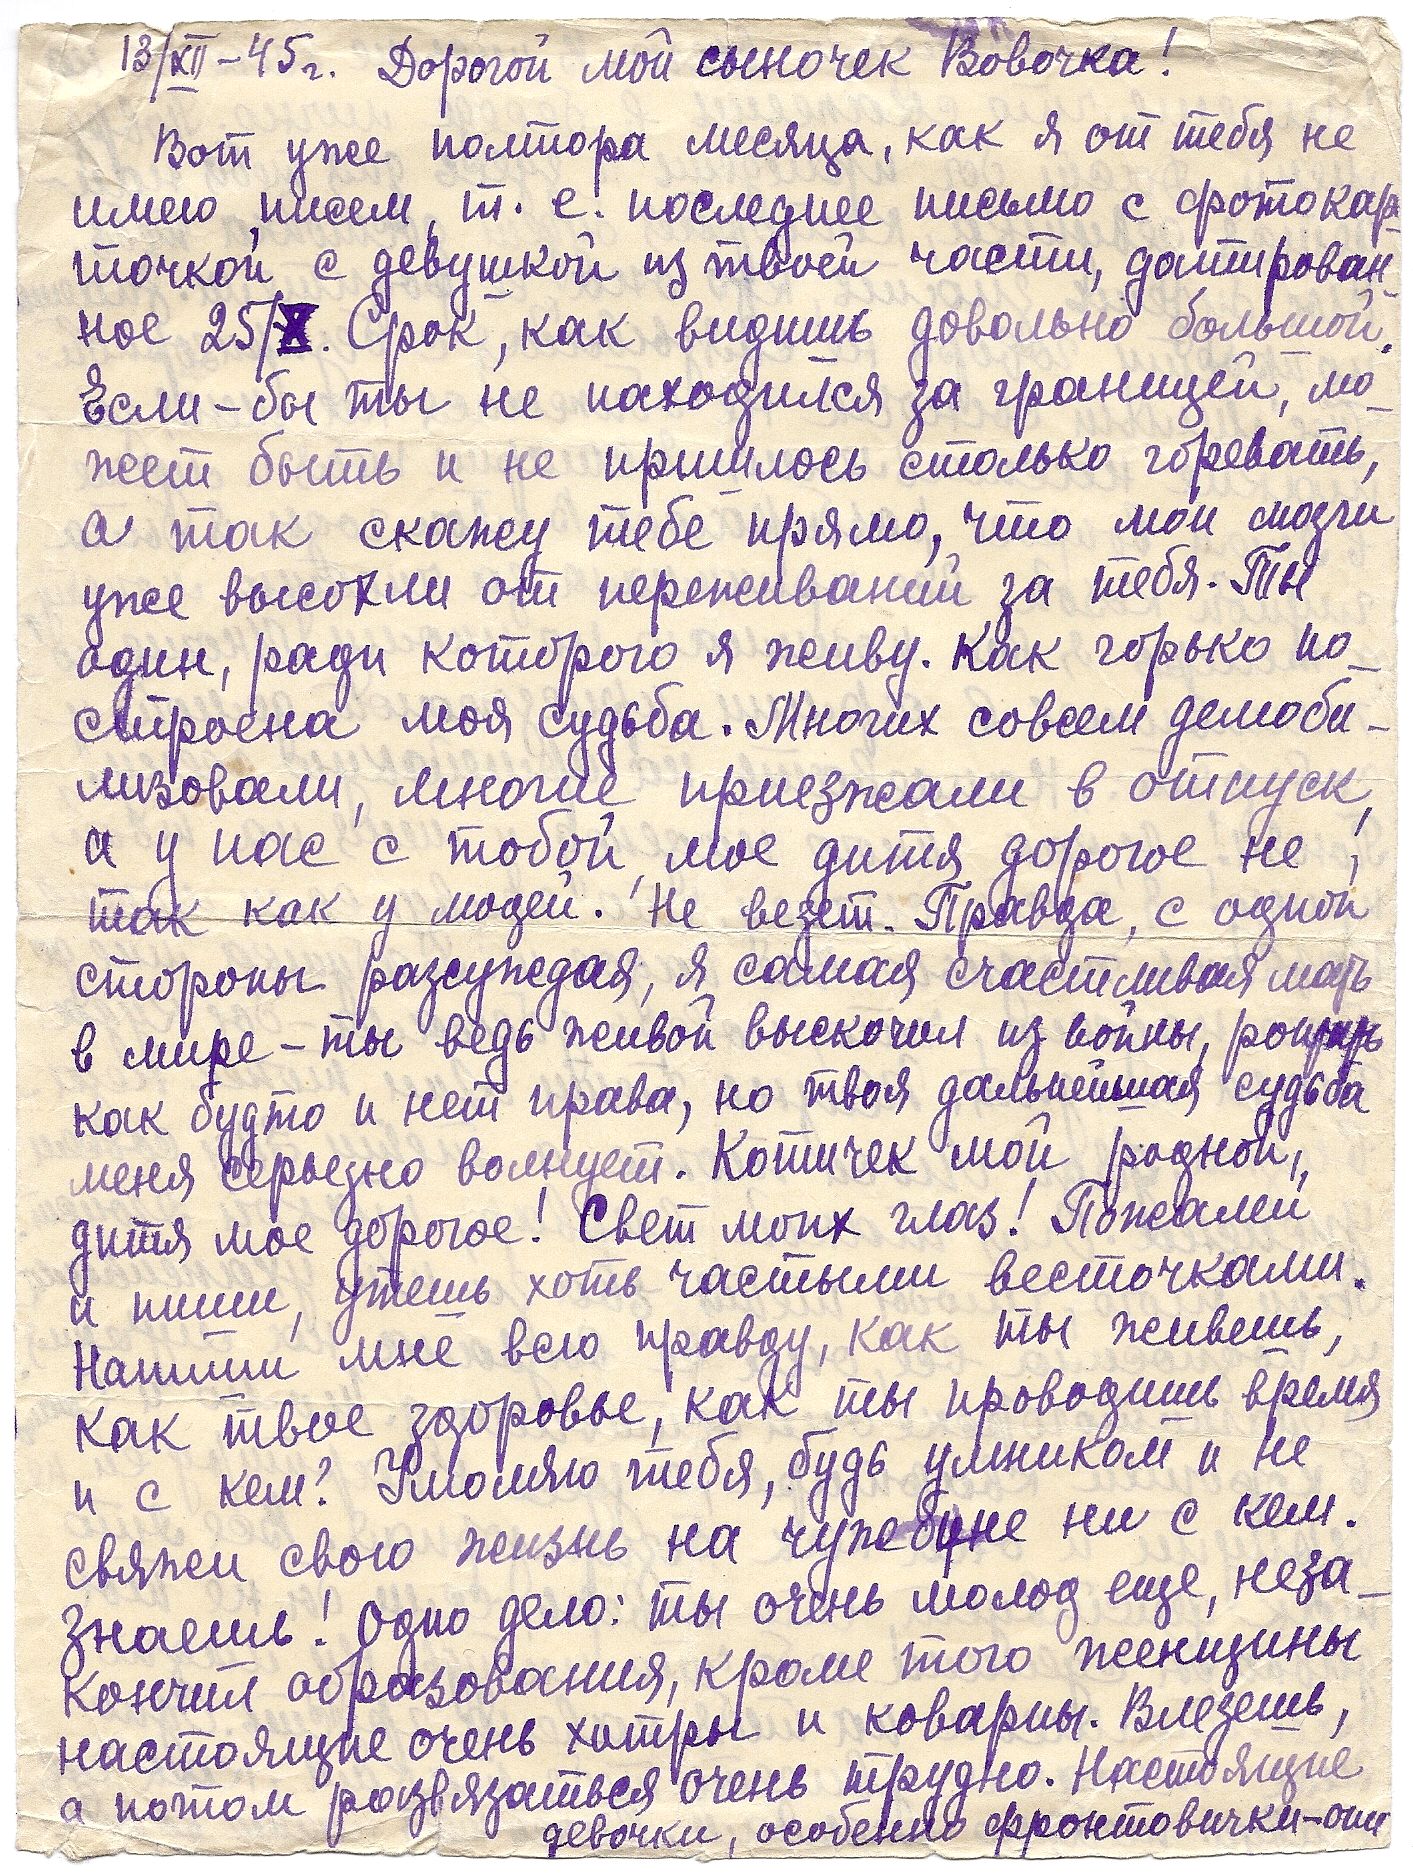 13/XII-45г. Дорогой мой сыночек Вовочка!
Вот уже полтора месяца, как я от тебя не
имею писем, т. е. последнее письмо с фотокар
точкой с девушкой из твоей части, датирован-
ное 25/X. Срок, как видишь довольно большой.
Если-бы ты не находился за границей, мо-
жет быть и не пришлось столько горевать,
а так скажу тебе прямо, что мои мозги
уже высохли от переживаний за тебя. Ты
один, ради которого я живу. Как горько по-
строена моя судьба. Многих совсем демоби-
лизовали, многие приезжали в отпуск,
а у нас с тобой, мое дитя дорогое не
так как у людей. Не везет. Правда, с одной
стороны разсуждая, я самая счастливая мать
в мире - ты ведь живой выскочил из войны,
как будто и нет права, но твоя дальнейшая судьба
меня серьезно волнует. Котичек мой родной,
дитя мое дорогое! Свет моих глаз! Пожалей
и пиши, утешь хоть частыми весточками.
Напиши мне всю правду, как ты живешь,
как твое здоровье, как ты проводишь время
и с кем? Умоляю тебя, будь умником и не
свяжи свою жизнь на чужбине ни с кем.
Знаешь! Одно дело: ты очень молод еще, неза-
кончил образования, кроме того женщины
настоящие очень хитры и коварны. Влезешь,
а потом развязаться очень трудно. Настоящие
девочки, особенно фронтовички-они